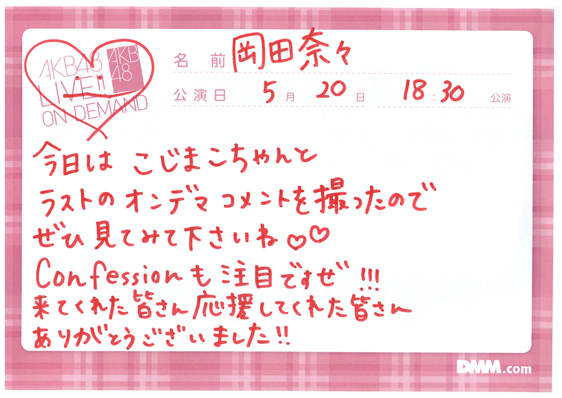 AKB48
LIVE!!
ON DEMAND
AKB
48
名前 岡田奈々
公演日 5月 20日 18:30 公演
今日は こじまこちゃんと
ラストの オンデマ コメントを 撮ったので
ぜひ 見てみて下さいね♡♡
Confessionも 注目ですぜ!!!
来てくれた皆さん 応援してくれた皆さん
ありがとうございました!!
DMM.com